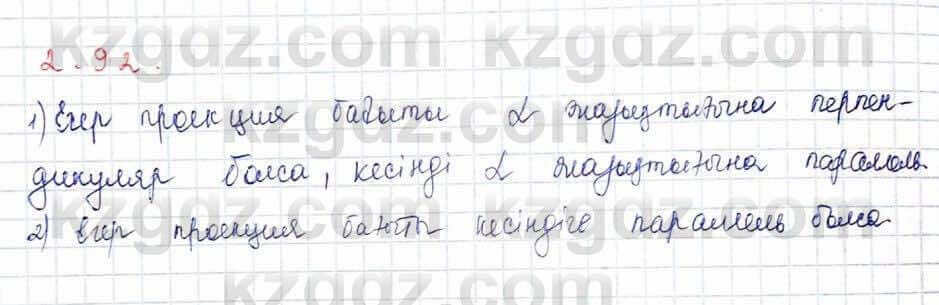 kzgdz.com kzgdz.com
2.92.
1) Егер проекция бағыты α жазықтығына перпен-
kzgdz.com kzgdz.com
дикуляр болса, кесінді α жазықтығына параллель
2) егер проекция бағыты кесіндіге параллель болса
kzgdz.com kzgdz.com